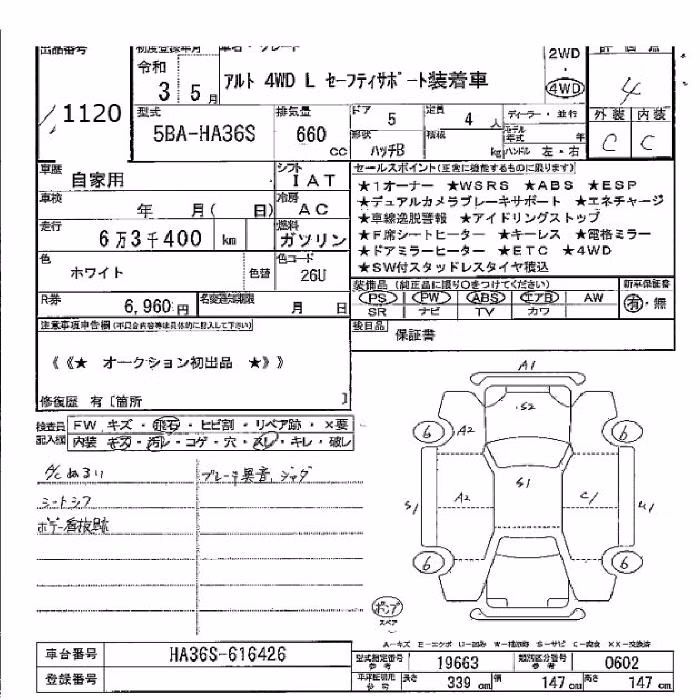 出品番号 初度登録年月 車名・グレード 2WD 評価点
令和
3 5月 アルト 4WD L セーフティサポート装着車 4WD 4
1120
型式 排気量 ドア 5 定員 4人 ディーラー・並行 外装 内装
5BA-HA36S 660 CC 形状 ハッチB 積載 kg モデル年式 年 C C
ハンドル 左・右
車歴 自家用 シフト IAT セールスポイント(正常に機能するものに限ります)
★1オーナー ★WSRS ★ABS ★ESP
車検 年 月( 日) 冷房 AC ★デュアルカメラブレーキサポート ★エネチャージ
★車線逸脱警報 ★アイドリングストップ
走行 6万3千400 km 燃料 ガソリン ★F席シートヒーター ★キーレス ★電格ミラー
★ドアミラーヒーター ★ETC ★4WD
色 ホワイト 色替 色コード 26U ★SW付スタッドレスタイヤ積込
装備品 (純正品に限り○をつけてください) 新車保証書
R券 6,960円 名変通知期限 月 日 PS PW ABS エアB AW 有・無
SR ナビ TV カワ
注意事項申告欄(不具合内容等は具体的に記入して下さい) 後日品 保証書
《《★ オークション初出品 ★》》
修復歴 有〔箇所 〕
検査員記入欄 FW キズ・飛石・ヒビ割・リペア跡・×要
内装 キズ・汚レ・コゲ・穴・スレ・キレ・破レ
A/Cぬるい ブレーキ異音、ジャダ
シートシワ
ボデー看板跡
A1
S2
6 A2 6
S1
S1 A2 C1 U1
6 6
ポンプ
スペア
A－キズ E－エクボ U－凹み W－補修跡 S－サビ C－腐食 XX－交換済
車台番号 HA36S-616426 型式指定番号 参考 19663 類別区分番号 参考 0602
登録番号 参考 長さ 339 cm 幅 147 cm 高さ 147 cm